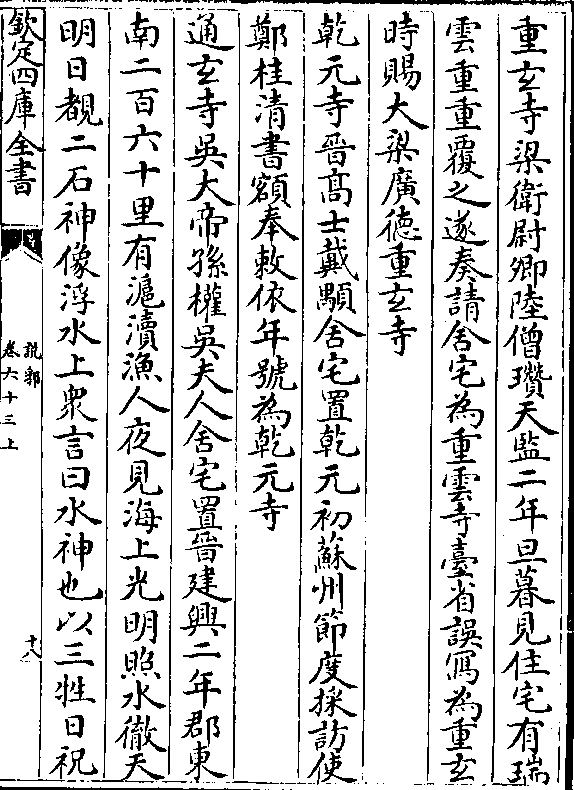 重玄寺梁衛尉卿陸僧瓚天監二年旦暮見住宅有瑞
雲重重覆之遂奏請舍宅為重雲寺臺省誤寫為重玄
時賜大梁廣德重玄寺
乾元寺晉髙士戴顒舍宅置乾元初蘇州節度採訪使
鄭桂清書額奉敕依年號為乾元寺
通玄寺吳大帝孫權吳夫人舍宅置晉建興二年郡東
南二百六十里有滬瀆漁人夜見海上光明照水徹天
明日覩二石神像浮水上衆言曰水神也以三牲日祝
欽定四庫全書
說郛
卷六十三上
十八